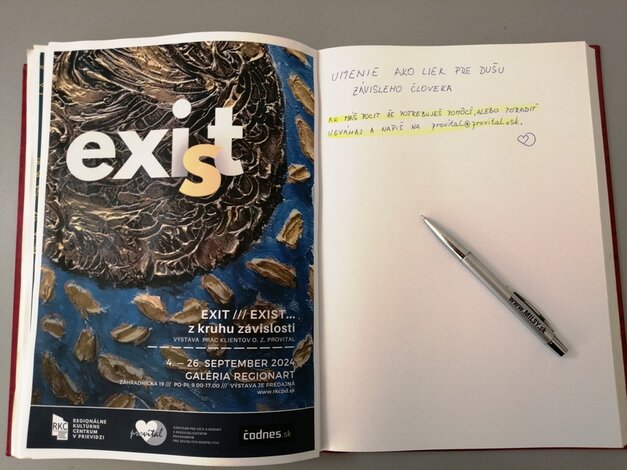 exist
EXIT /// EXIST...
z kruhu závislosti
VÝSTAVA PRÁC KLIENTOV O. Z. PROVITAL
4. – 26. SEPTEMBER 2024
GALÉRIA REGIONART
ZÁHRADNÍCKA 19 /// PO-PI: 9.00-17.00 /// VÝSTAVA JE PREDAJNÁ
www.rkcpd.sk
RKC
REGIONÁLNE
KULTÚRNE
CENTRUM
V PRIEVIDZI
provital
CENTRUM PRE DETI A RODINY
S RESOCIALIZAČNÝM
PROGRAMOM
PRE ZÁVISLÝCH DOSPELÝCH
čodnes.sk
UMENIE AKO LIEK PRE DUŠU
ZÁVISLEHO ČLOVEKA
AK MÁŠ POCIT ŽE POTREBUJEŠ POMÔCŤ, ALEBO PORADIŤ
NEVÁHAJ A NAPÍŠ NA provital@provital.sk.
www.MILSY.sk